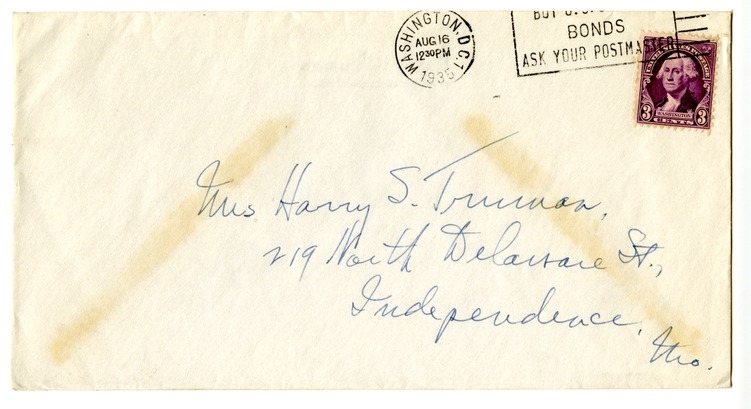 WASHINGTON, D.C. 1
AUG 16
12 30 PM
1935
BONDS
ASK YOUR POSTMASTER
UNITED STATES POSTAGE
3 3
WASHINGTON
CENTS
Mrs Harry S. Truman,
219 North Delaware St.,
Independence,
Mo.